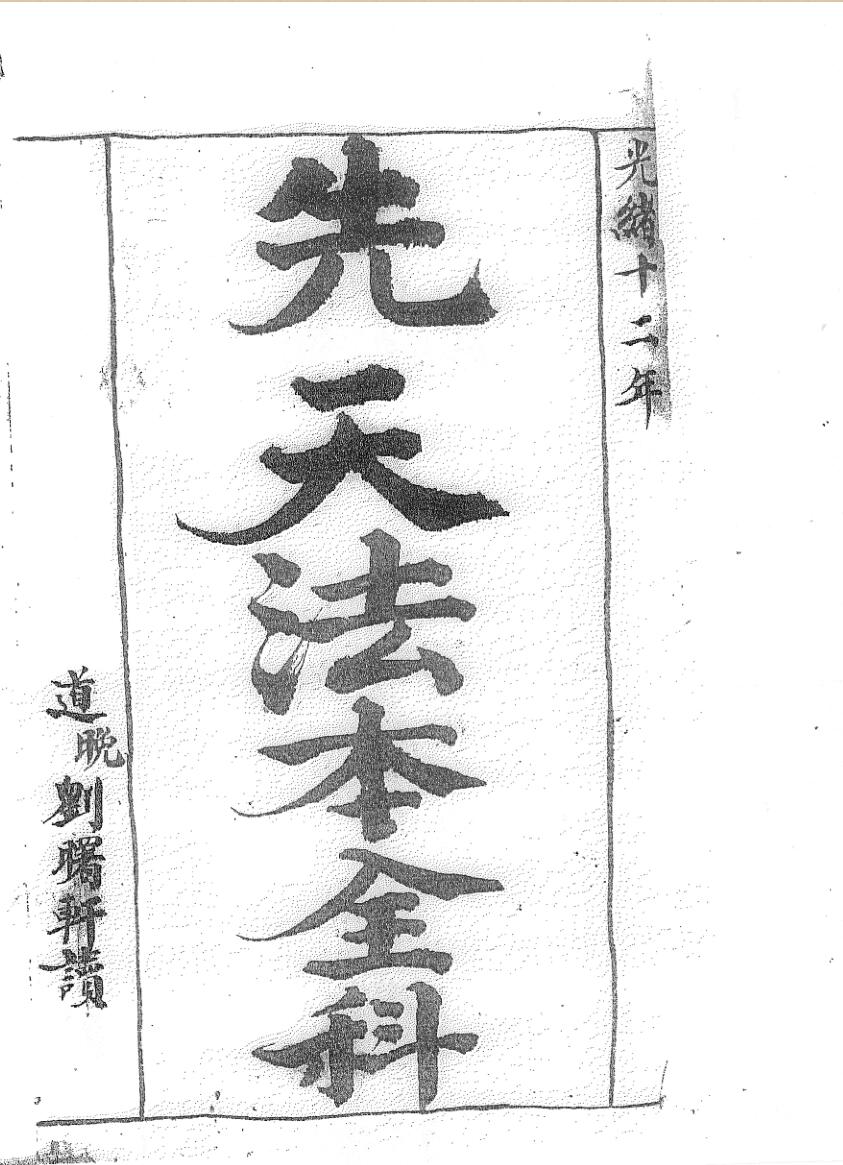 光緒十二年
先天法本全科
道晚劉曙軒讀